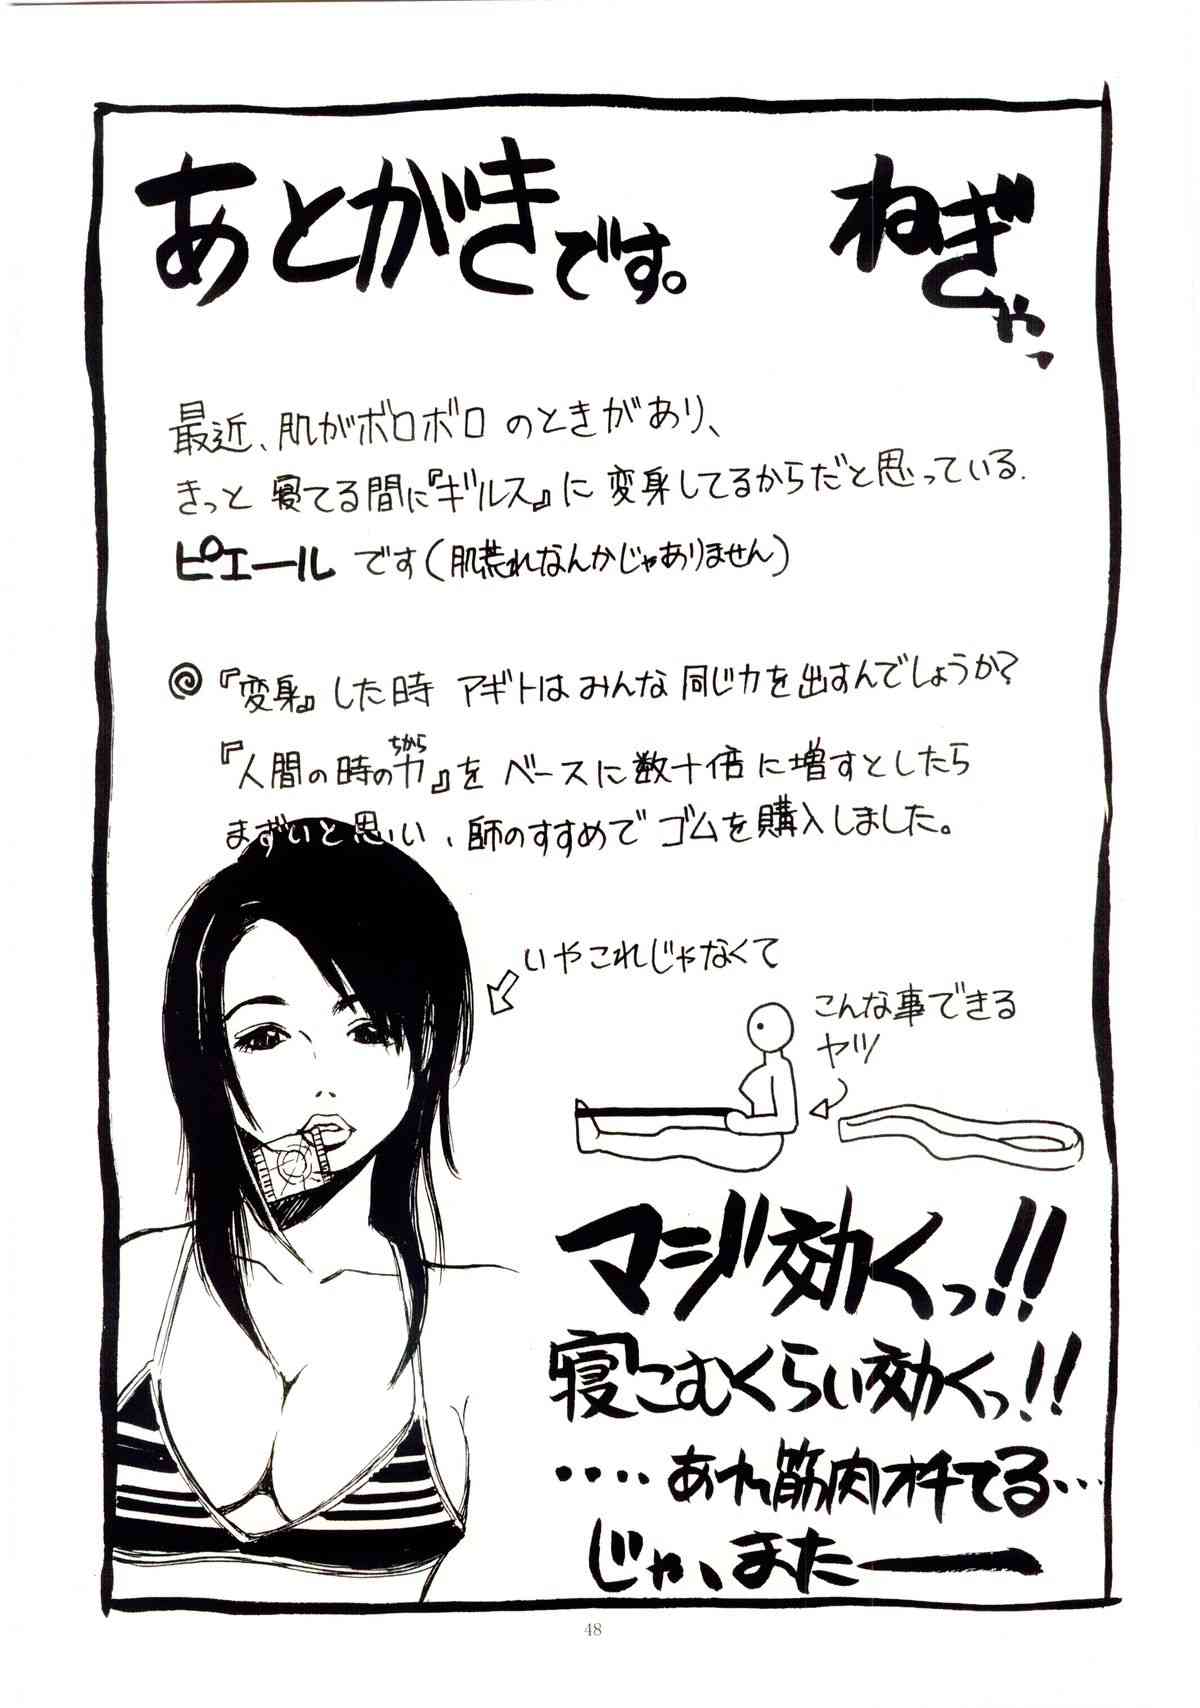 あとがきです。 ねぎゃっ
最近、肌がボロボロのときがあり、
きっと寝てる間に『ギルス』に変身してるからだと思っている.
ピエールです(肌荒れなんかじゃありません)
『変身』した時 アギトはみんな同じ力を出すんでしょうか?
『人間の時の力』をベースに数十倍に増すとしたら
ちから
まずいと思い、師のすすめでゴムを購入しました。
いやこれじゃなくて
こんな事できる
ヤツ
マジ効くっ!!
寝こむくらい効くっ!!
‥‥あれ筋肉オチてる…
じゃ、またー
48